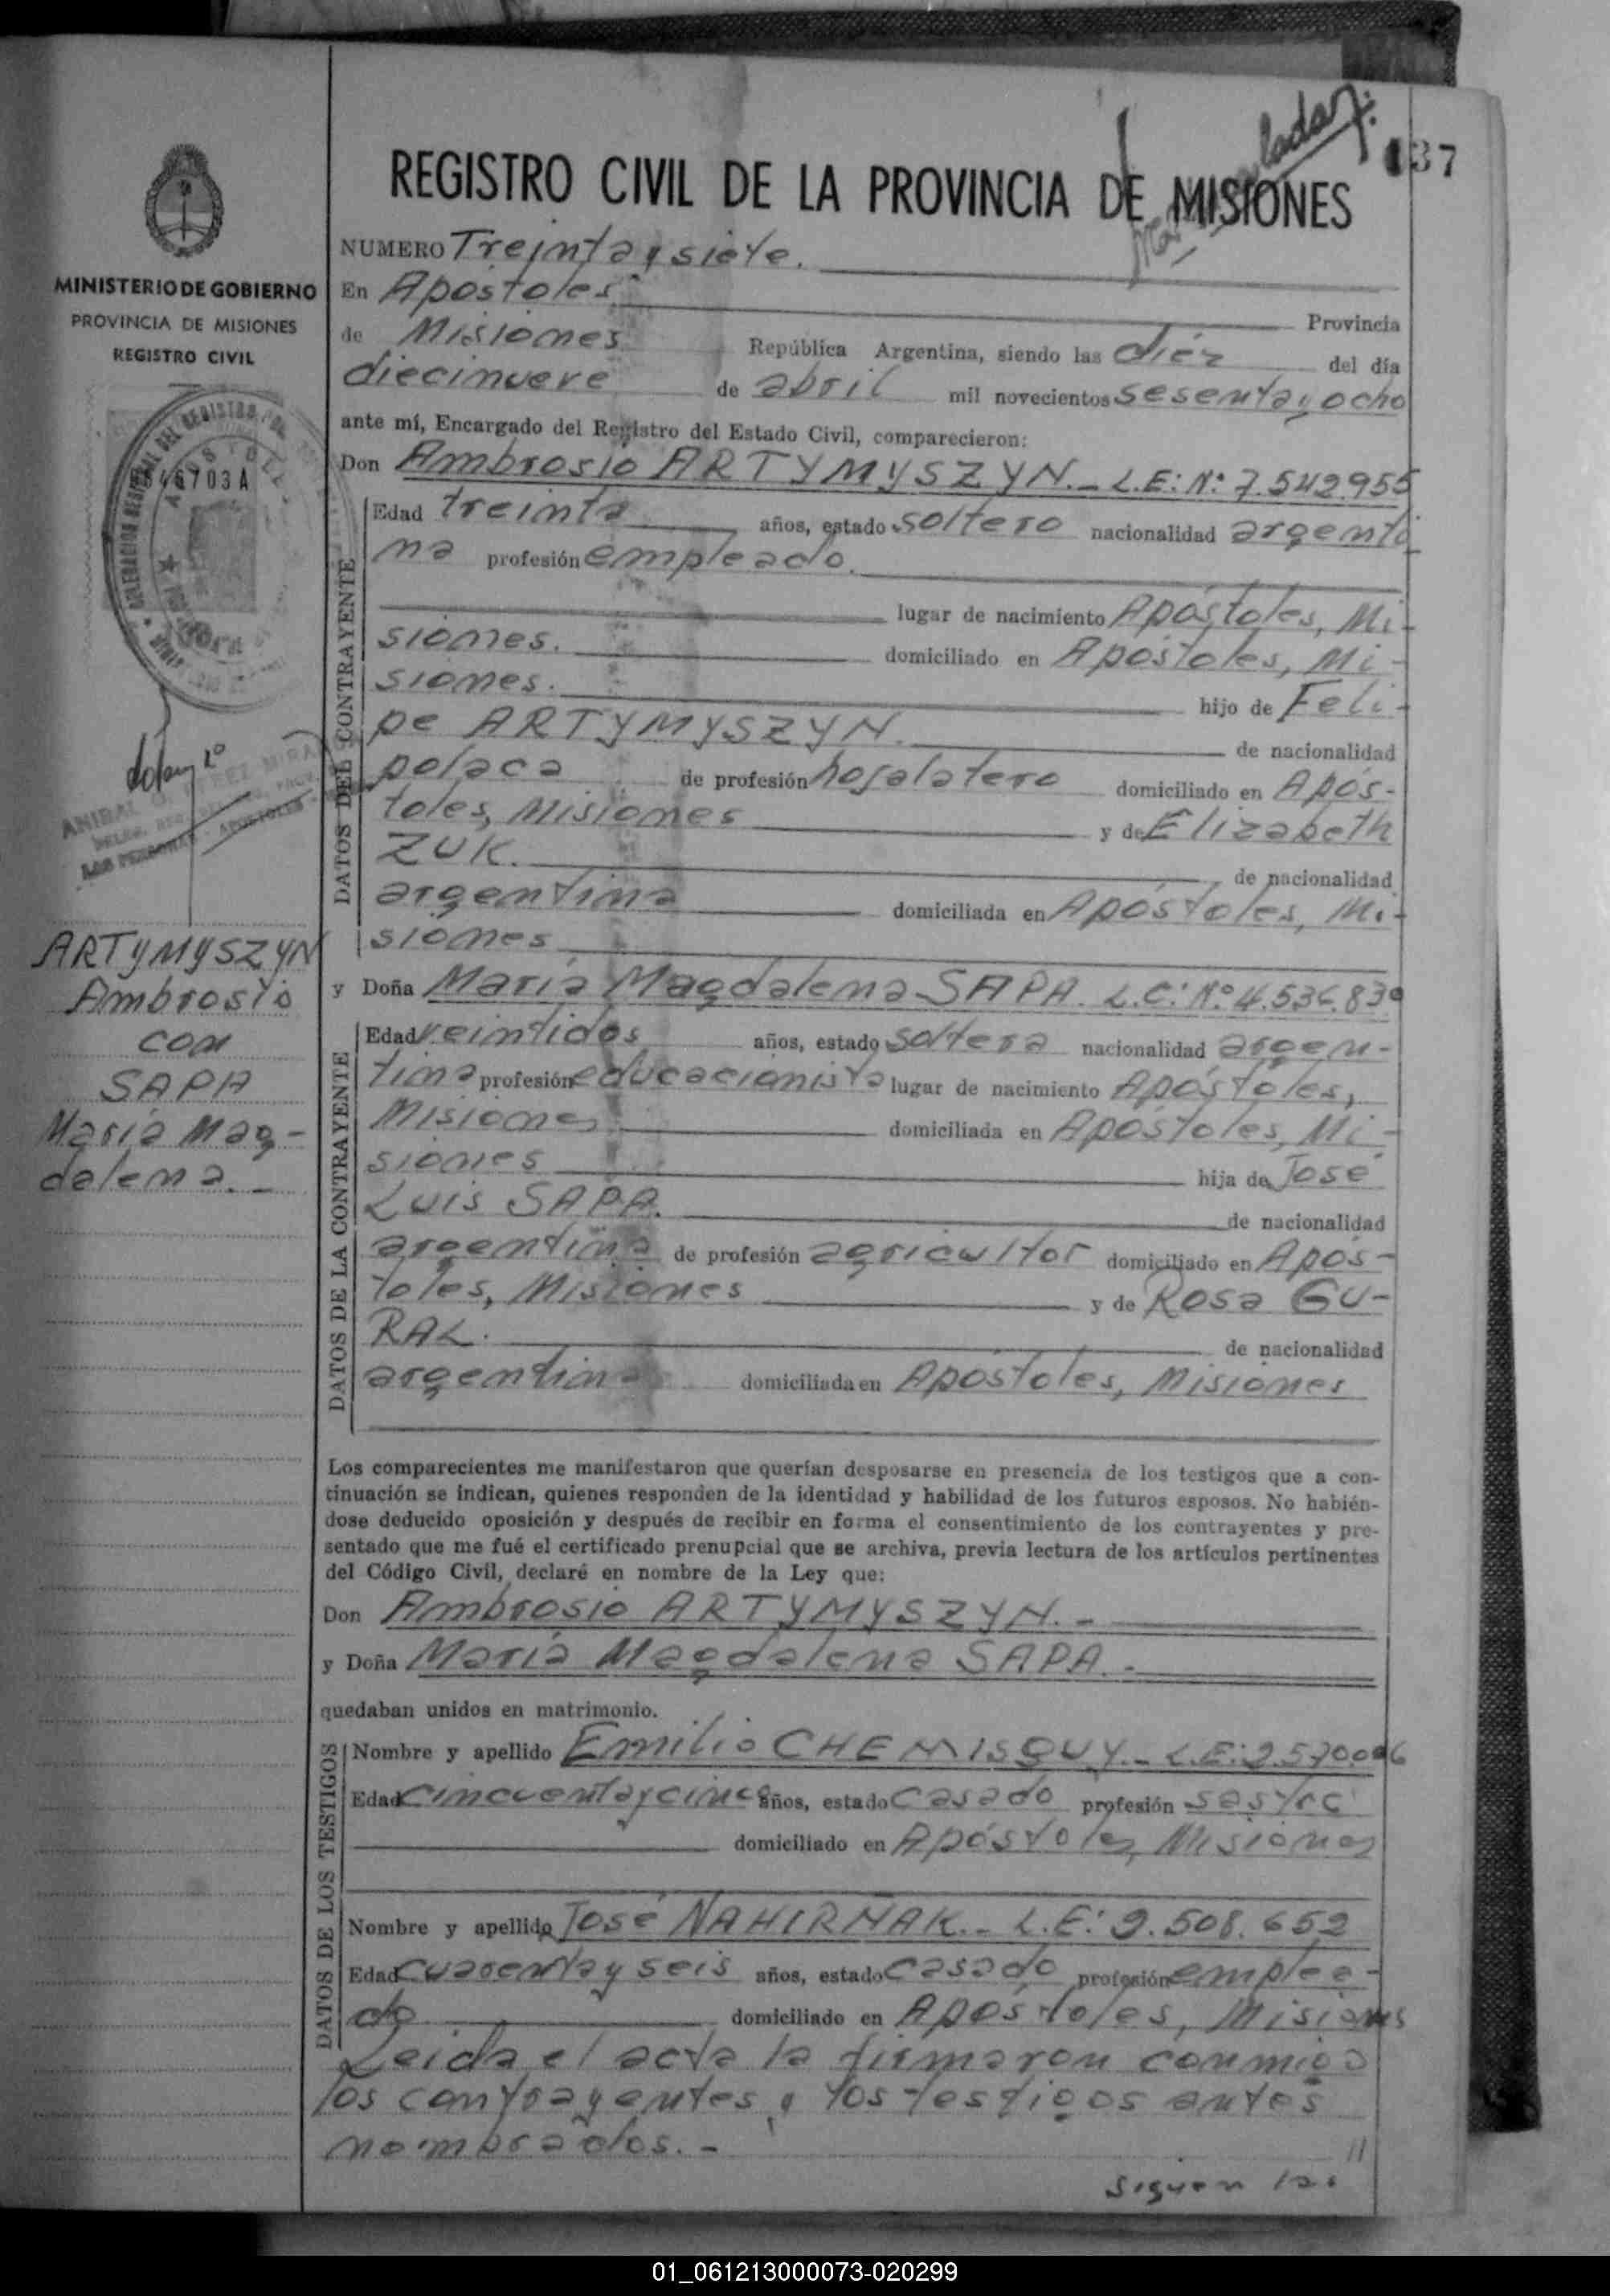 137
REGISTRO CIVIL DE LA PROVINCIA DE MISIONES
MINISTERIO DE GOBIERNO
PROVINCIA DE MISIONES
REGISTRO CIVIL
46703 A
ARTYMYSZYN
Ambrosio
con
SAPA
María Mag-
dalena.-
NUMERO Treinta y siete.
En Apóstoles Provincia
de Misiones República Argentina, siendo las diéz del día
diecinueve de abril mil novecientos sesenta y ocho
ante mí, Encargado del Registro del Estado Civil, comparecieron:
Don Ambrosio ARTYMYSZYN.- L.E: Nº 7.542.955
DATOS DEL CONTRAYENTE
Edad treinta años, estado soltero nacionalidad argenti
na profesión empleado.
lugar de nacimiento Apóstoles, Mi-
siones. domiciliado en Apóstoles, Mi-
siones. hijo de Feli-
pe ARTYMYSZYN. de nacionalidad
polaca de profesión hojalatero domiciliado en Após-
toles, Misiones y de Elizabeth
ZUK. de nacionalidad
argentina domiciliada en Apóstoles, Mi-
siones
y Doña María Magdalena SAPA. L.C: Nº 4.536.830
DATOS DE LA CONTRAYENTE
Edad veintidos años, estado soltera nacionalidad argen-
tina profesión educacionista lugar de nacimiento Apóstoles,
Misiones domiciliada en Apóstoles, Mi-
siones hija de José
Luis SAPA. de nacionalidad
argentina de profesión agricultor domiciliado en Após-
toles, Misiones y de Rosa GU-
RAL. de nacionalidad
argentina domiciliada en Apóstoles, Misiones
Los comparecientes me manifestaron que querían desposarse en presencia de los testigos que a con-
tinuación se indican, quienes responden de la identidad y habilidad de los futuros esposos. No habién-
dose deducido oposición y después de recibir en forma el consentimiento de los contrayentes y pre-
sentado que me fué el certificado prenupcial que se archiva, previa lectura de los artículos pertinentes
del Código Civil, declaré en nombre de la Ley que:
Don Ambrosio ARTYMYSZYN.-
y Doña María Magdalena SAPA.-
quedaban unidos en matrimonio.
DATOS DE LOS TESTIGOS
Nombre y apellido Emilio CHEMISQUY.- L.E:
Edad cincuenta y cinco años, estado casado profesión sastre
domiciliado en Apóstoles, Misiones
Nombre y apellido José NAHIRÑAK.- L.E: 2.508.652
Edad cuarenta y seis años, estado casado profesión emplea-
do domiciliado en Apóstoles, Misiones
Leida el acta la firmaron conmigo
los contrayentes y los testigos antes
nombrados.- //
siguen las
01_061213000073-020299